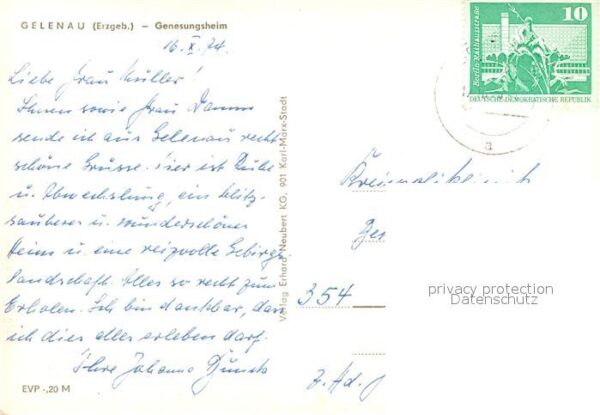 GELENAU (Erzgeb.) – Genesungsheim
16. X. 74.
Liebe Frau Müller!
Ihnen sowie Frau Damm
sende ich aus Gelenau recht
schöne Grüsse. Hier ist Ruhe
u. Abwechslung, ein blitz-
sauberes u. wunderschönes
Heim u. eine reizvolle Gebirgs-
landschaft. Alles so recht zum
Erholen. Ich bin dankbar, dass
ich dies alles erleben darf.
Ihre Johanna
EVP -,20 M
Verlag Erhard Neubert KG, 901 Karl-Marx-Stadt
10
Berlin, Rathausstraße
DEUTSCHE DEMOKRATISCHE REPUBLIK
a
Kreispoliklinik
354
z. Hd.
privacy protection
Datenschutz